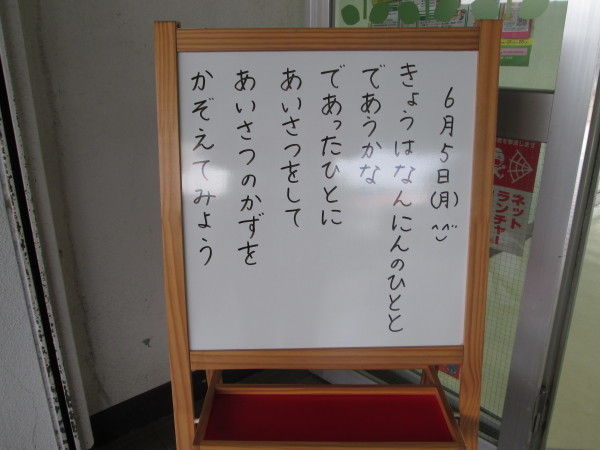 6月5日(月)^^
きょうはなんにんのひとと
であうかな
であったひとに
あいさつをして
あいさつのかずを
かぞえてみよう
ネット
ランチャー